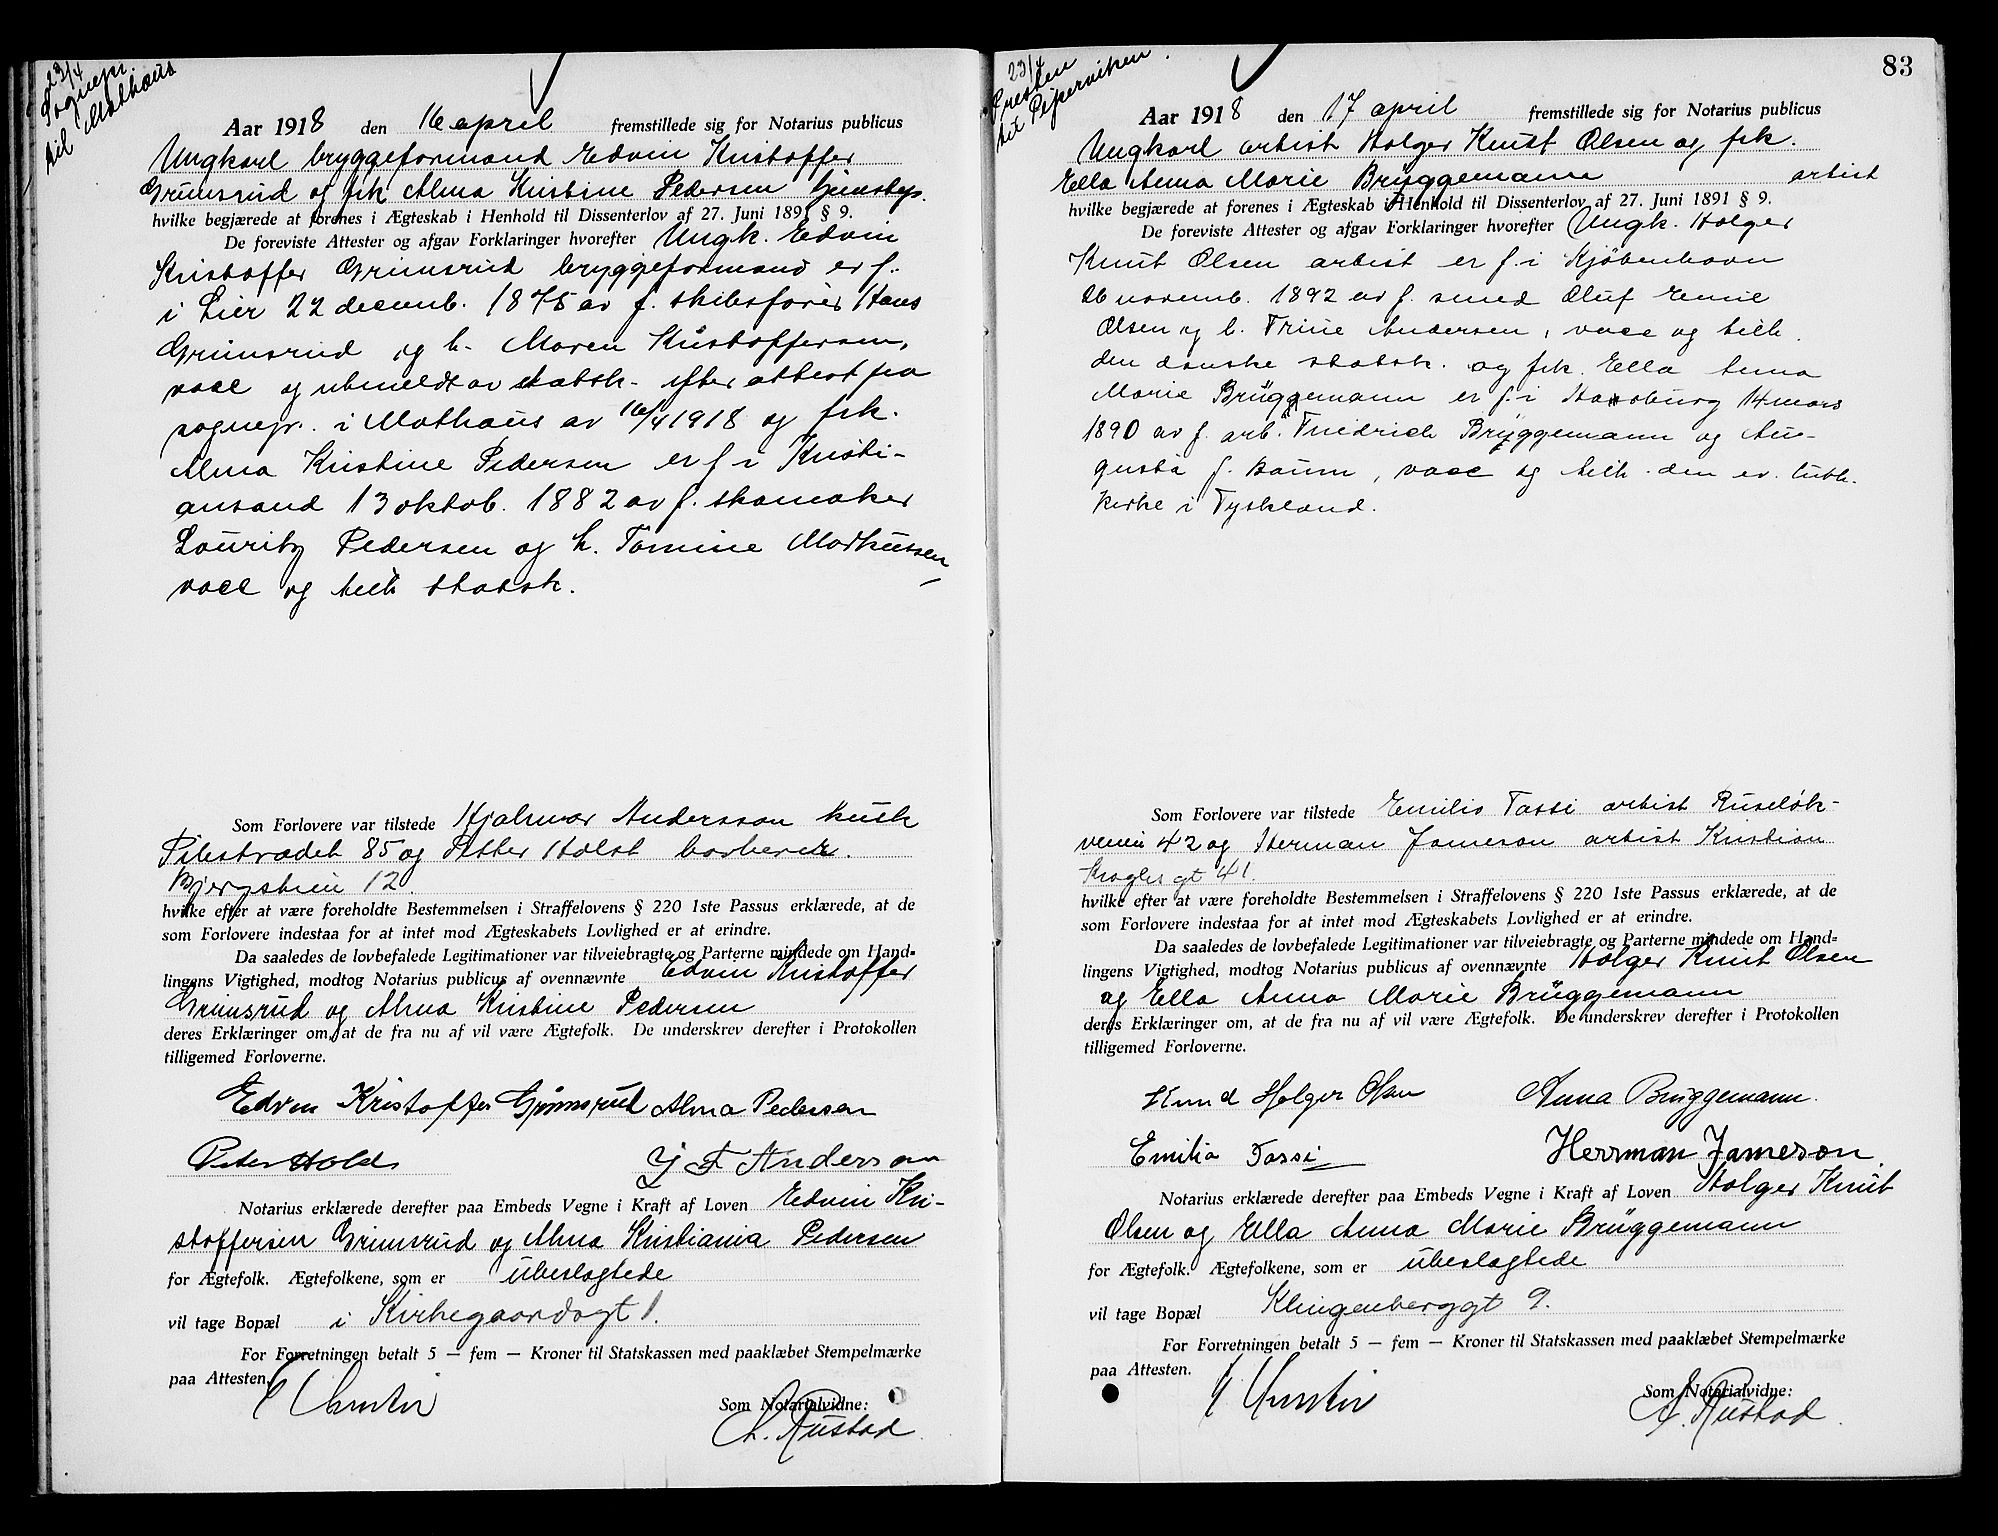 23/4
Sognepr.
til Mathæus
Aar 1918 den 16 april fremstillede sig for Notarius publicus
Ungkarl bryggeformand Edvin Kristoffer
Grimsrud og frk Alma Kristine Pedersen
hvilke begjærede at forenes i Ægteskab i Henhold til Dissenterlov af 27. Juni 1891 § 9.
De foreviste Attester og afgav Forklaringer hvorefter Ungk. Edvin
Kristoffer Grimsrud bryggeformand er f.
i Lier 22 decemb. 1875 av f. skibsfører Hans
Grimsrud og h. Maren Kristoffersen,
vacc og utmeldt av statsk. efter attest fra
sognepr. i Mathæus av 16/4 1918 og frk.
Alma Kristine Pedersen er f i Kristi-
ansand 13 oktob. 1882 av f. skomaker
Lauritz Pedersen og h. Tomine Markussen
vacc og tilh statsk.
Som Forlovere var tilstede Hjalmar Andersson kusk
Pilestrædet 85 og Petter Holst barberer.
Bjergstien 12.
hvilke efter at være foreholdte Bestemmelsen i Straffelovens § 220 1ste Passus erklærede, at de
som Forlovere indestaa for at intet mod Ægteskabets Lovlighed er at erindre.
Da saaledes de lovbefalede Legitimationer var tilveiebragte og Parterne mindede om Hand-
lingens Vigtighed, modtog Notarius publicus af ovennævnte Edvin Kristoffer
Grimsrud og Alma Kristine Pedersen
deres Erklæringer om, at de fra nu af vil være Ægtefolk. De underskrev derefter i Protokollen
tilligemed Forloverne.
Edvin Kristoffer Grimsrud Alma Pedersen
Peter Holst Hj F Anderson
Notarius erklærede derefter paa Embeds Vegne i Kraft af Loven Edvin Kri-
stoffersen Grimsrud og Alma Kristiania Pedersen
for Ægtefolk. Ægtefolkene, som er ubeslagtede
vil tage Bopæl i Kirkegaardsgt 1.
For Forretningen betalt 5 — fem — Kroner til Statskassen med paaklæbet Stempelmærke
paa Attesten.
Som Notarialvidne:
Rustad
83
23/4
Presten
til Piperviken.
Aar 1918 den 17 april fremstillede sig for Notarius publicus
Ungkarl artist Holger Knut Olsen og frk.
Ella Anna Marie Brüggemann artist
hvilke begjærede at forenes i Ægteskab i Henhold til Dissenterlov af 27. Juni 1891 § 9.
De foreviste Attester og afgav Forklaringer hvorefter Ungk. Holger
Knut Olsen artist er f. i Kjöbenhavn
26 novemb. 1892 av f. smed Oluf Emil
Olsen og h. Trine Andersen, vacc og tilh.
den danske statsk. og frk. Ella Anna
Marie Brüggemann er f. i Hamburg 14 mars
1890 av f. arb. Friedrich Brüggemann og Au-
gusta f. Baum, vacc og tilh. den ev. luth.
kirke i Tyskland.
Som Forlovere var tilstede Emilio Tassi artist Ruseløk-
veien 42 og Herman Jameson artist Kristian
Kroghs gt 41.
hvilke efter at være foreholdte Bestemmelsen i Straffelovens § 220 1ste Passus erklærede, at de
som Forlovere indestaa for at intet mod Ægteskabets Lovlighed er at erindre.
Da saaledes de lovbefalede Legitimationer var tilveiebragte og Parterne mindede om Hand-
lingens Vigtighed, modtog Notarius publicus af ovennævnte Holger Knut Olsen
og Ella Anna Marie Brüggemann
deres Erklæringer om, at de fra nu af vil være Ægtefolk. De underskrev derefter i Protokollen
tilligemed Forloverne.
Knud Holger Olsen Anna Brüggemann.
Emilio Tassi Herrman Jameson.
Notarius erklærede derefter paa Embeds Vegne i Kraft af Loven Holger Knut
Olsen og Ella Anna Marie Brüggemann
for Ægtefolk. Ægtefolkene, som er ubeslagtede
vil tage Bopæl Klingenberggt 9.
For Forretningen betalt 5 — fem — Kroner til Statskassen med paaklæbet Stempelmærke
paa Attesten.
Som Notarialvidne:
Rustad